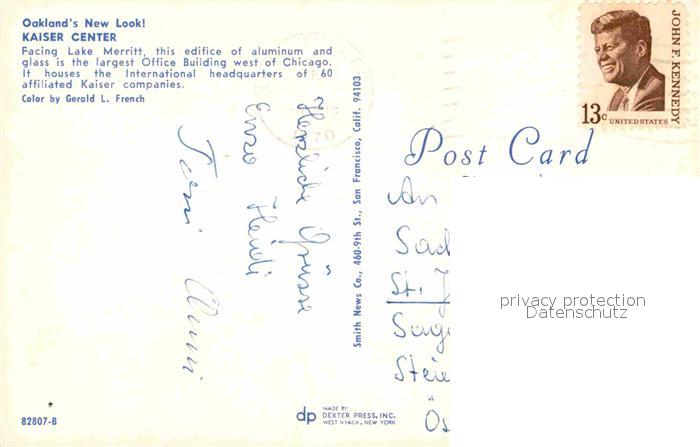 Oakland's New Look!
KAISER CENTER
Facing Lake Merritt, this edifice of aluminum and
glass is the largest Office Building west of Chicago.
It houses the International headquarters of 60
affiliated Kaiser companies.
Color by Gerald L. French
Herzliche Grüsse
Enso Heidi
82807-B
Smith News Co., 460-9th St., San Francisco, Calif. 94103
dp MADE BY
DEXTER PRESS, INC.
WEST NYACK, NEW YORK
JOHN F. KENNEDY
13c UNITED STATES
Post Card
An
St.
privacy protection
Datenschutz